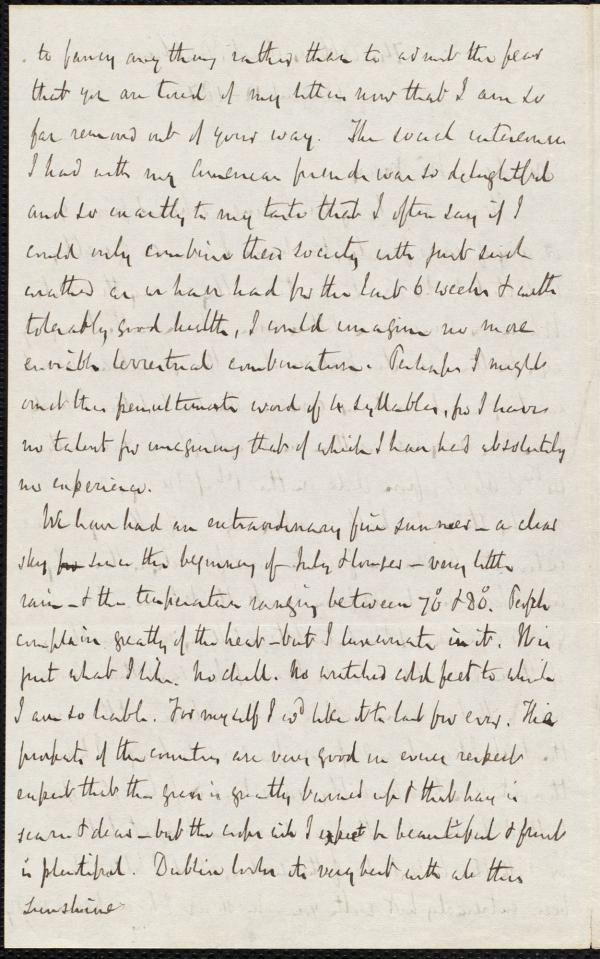 to fancy any thing rather than to admit the fear
that you are tired of my letters now that I am so
far removed out of your way. The social intercourse
I had with my American friends was so delightful
and so exactly to my taste that I often say if I
could only combine their society with just such
weather as we have had for the last 6 weeks & with
tolerably good health, I could imagine no more
enviable terrestrial combination. Perhaps I might
omit the penultimate word of 4 syllables, for I have
no talent for imagining that of which I have had absolutely
no experience.
We have had an extraordinary fine summer - a clear
sky for since the beginning of July & longer - very little
rain - & the temperature ranging between 70° & 80°. People
complain greatly of the heat - but I luxuriate in it. It is
just what I like. No chill. No wretched cold feet to which
I am so liable. For myself I wd like it to last for ever. The
prospects of the country are very good in every respect
except that the grass is greatly burned up & that hay is
scarce & dear - but the crops are I expect to be beautiful & fruit
is plentiful. Dublin looks its very best with all this
sunshine